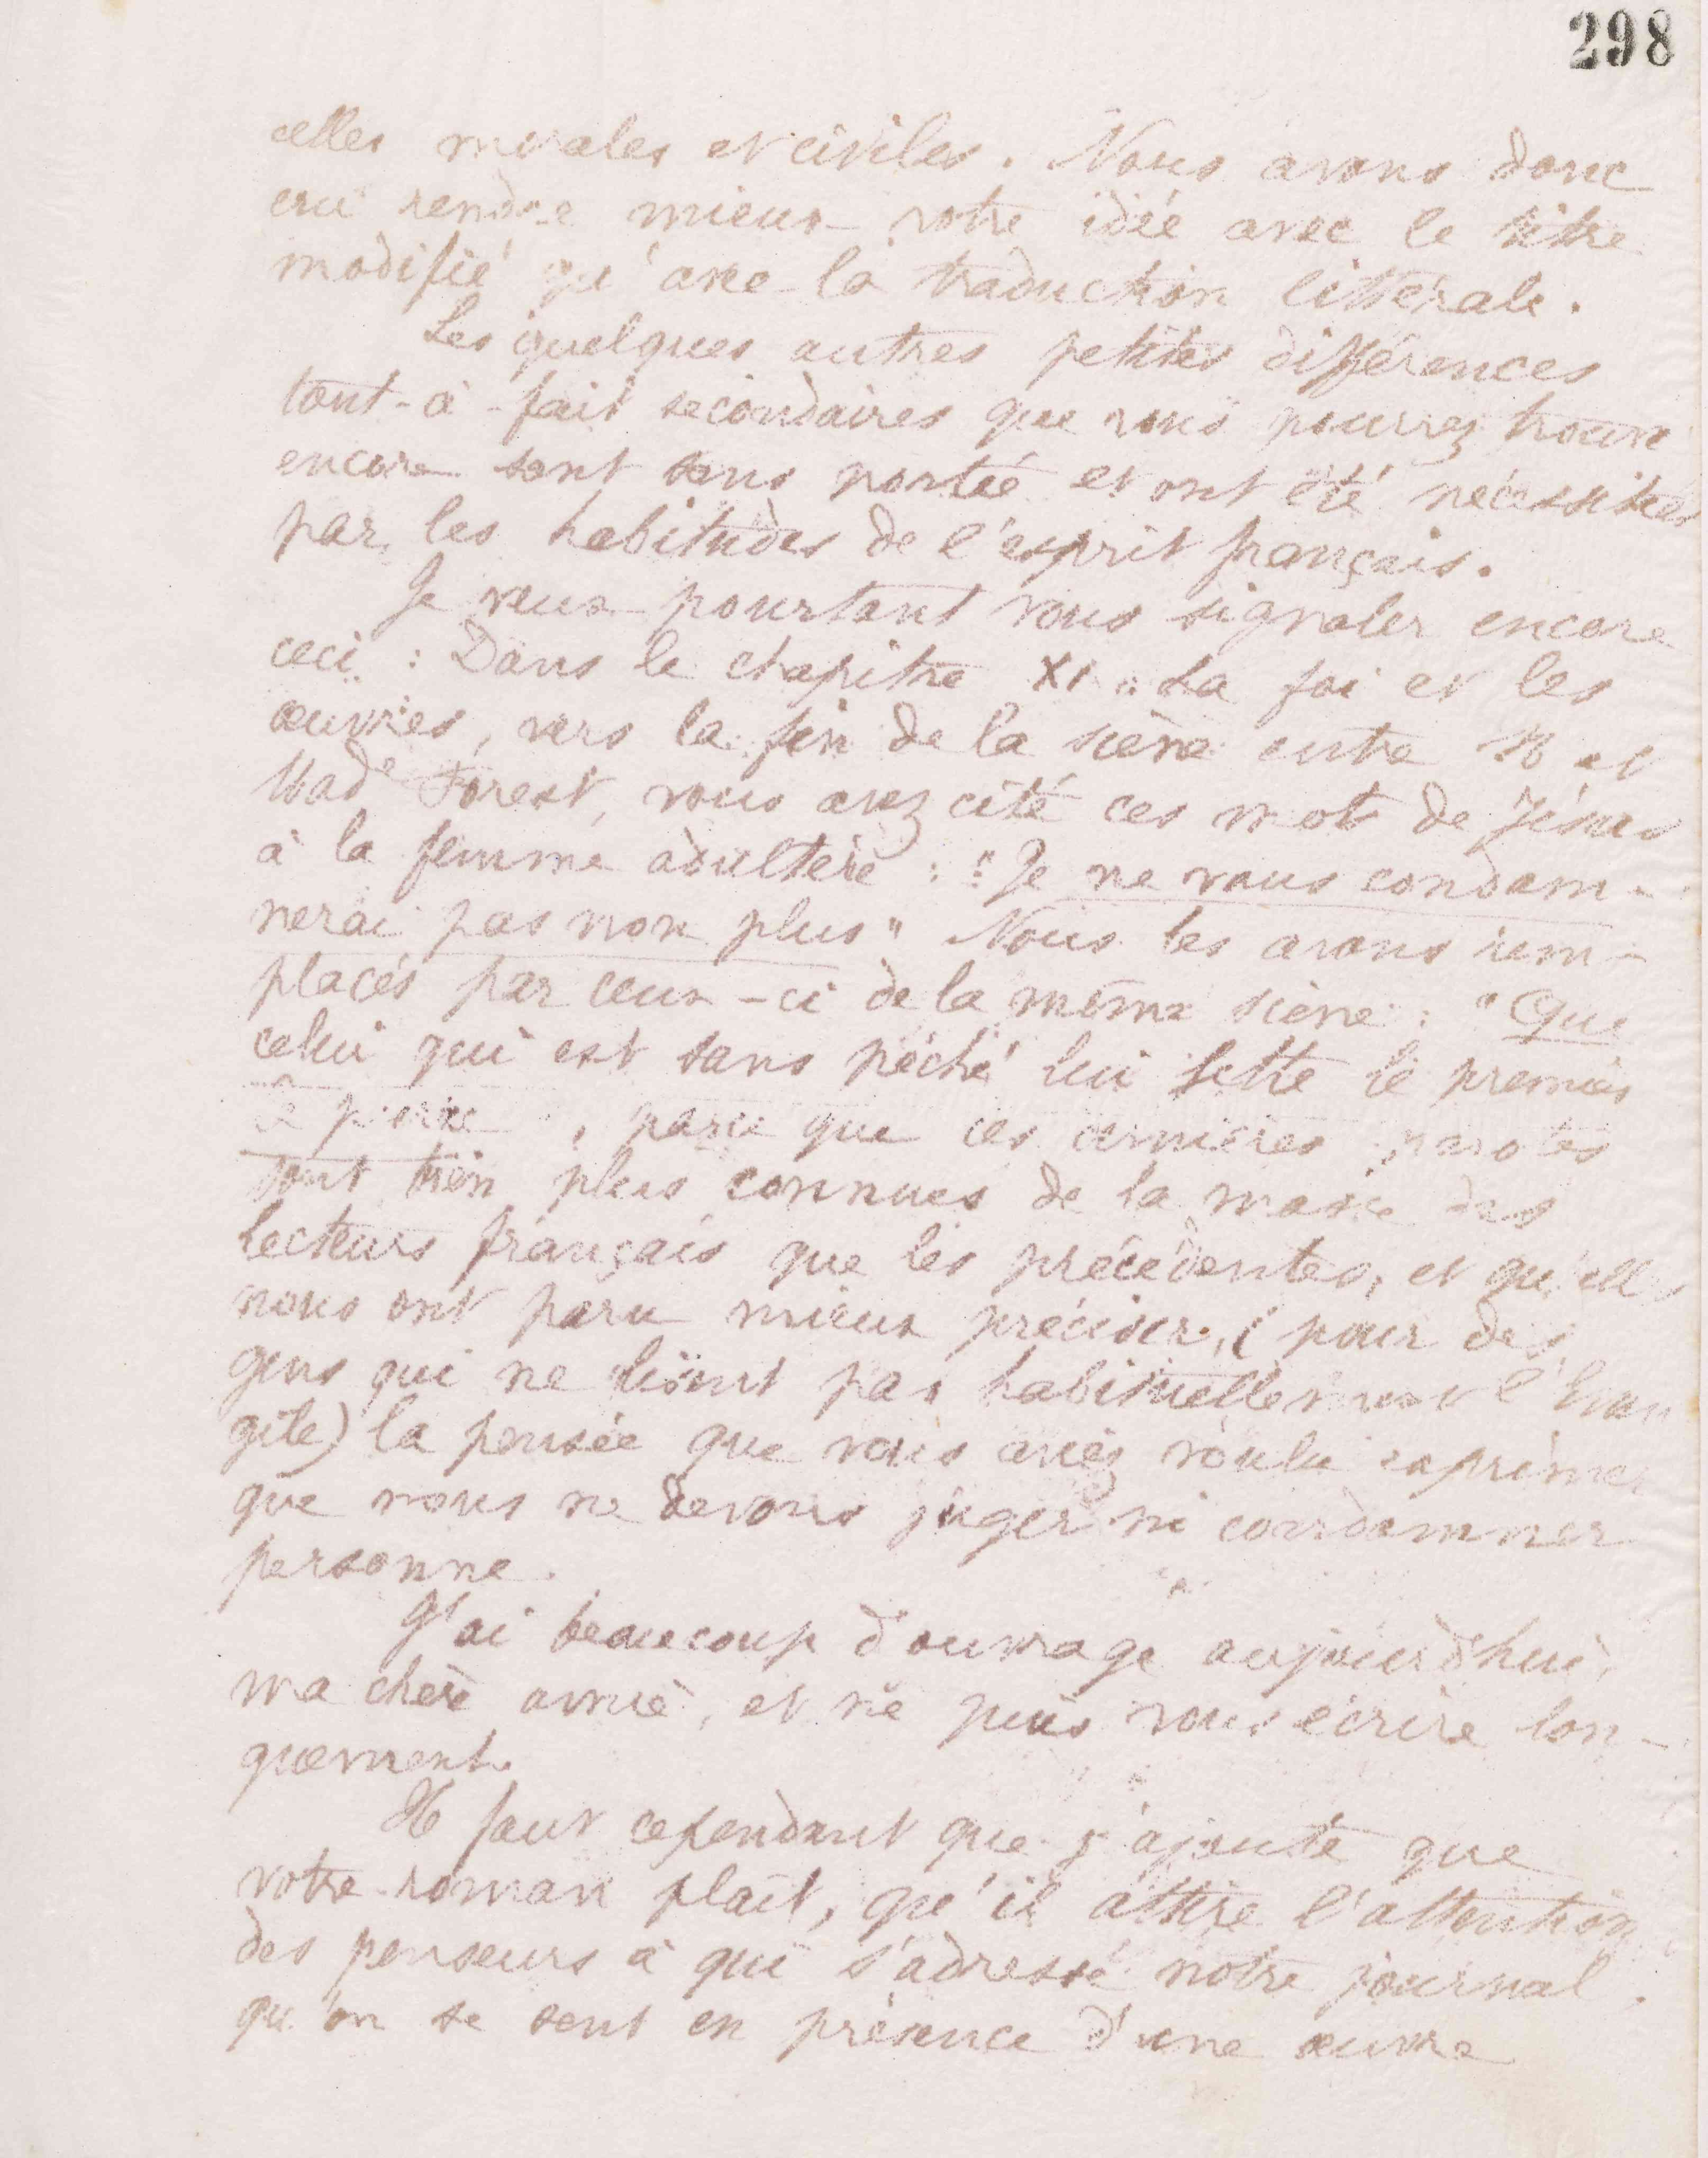 298
celles morales et civiles. Nous avons donc
cru rendre mieux votre idée avec le titre
modifié qu'avec la traduction littérale.
Les quelques autres petites différences
tout-à-fait secondaires que vous pourrez trouver
encore sont sans portée et ont été nécessitées
par les habitudes de l'esprit français.
Je veux pourtant vous signaler encore
ceci : Dans le chapitre XI "La foi et les
œuvres, vers la fin de la scène entre M et
Made Forest, vous avez cité ces mots de Jésus
à la femme adultère : "Je ne vous condam-
nerai pas non plus" Nous les avons rem-
placés par ceux-ci de la même scène : "Que
celui qui est sans péché lui jette le premier
la pierre, parce que ces dernières paroles
sont bien plus connues de la masse des
lecteurs français que les précédentes, et qu'elles
nous ont paru mieux préciser, (pour des
gens qui ne lisent pas habituellement l'Evan
gile) la pensée que vous aviez voulu exprimer
que nous ne devons juger ni condamner
personne.
J'ai beaucoup d'ouvrage aujourd'hui,
ma chère amie, et ne puis vous écrire lon-
guement.
Il faut cependant que j'ajoute que
votre roman plaît, qu'il attire l'attention
des penseurs à qui s'adresse notre journal,
qu'on se sent en présence d'une œuvre